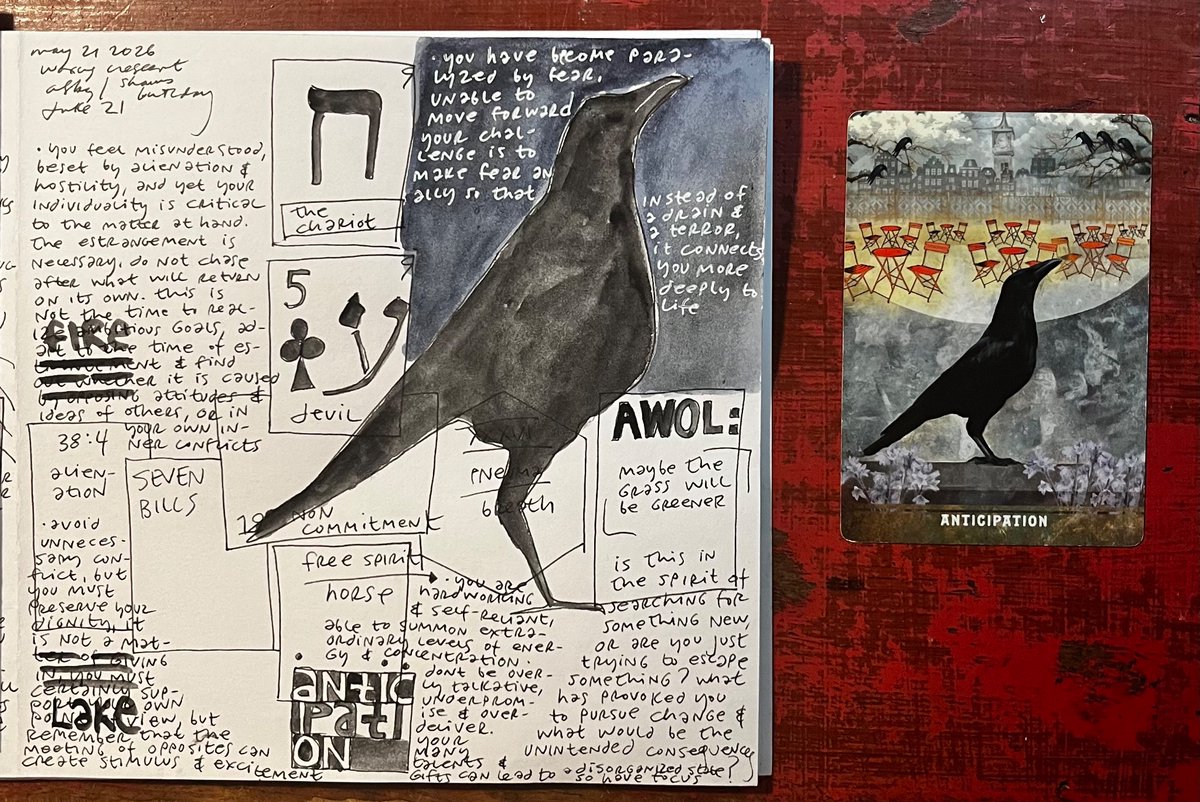 may 21 2026
waxing crescent
birthday
June 21
· you feel misunderstood,
beset by alienation &
hostility, and yet your
individuality is critical
to the matter at hand.
The estrangement is
necessary. do not chase
after what will return
on its own. this is
not the time to real-
ize ambitious goals, ad-
apt to the time of es-
trangement & find
out whether it is caused
by opposing attitudes &
ideas of others, or in
your own in-
ner conflicts
fire
38:4
alien-
ation
· avoid
unneces-
sary con-
flict, but
you must
preserve your
dignity, it
is not a mat-
ter of giving
in, you must
certainly sup-
port your own
point of view, but
remember that the
meeting of opposites can
create stimulus & excitement
Lake
ח
the
chariot
5
ע
devil
SEVEN
BILLS
NON
COMMITMENT
free spirit
horse
able to summon extra-
ordinary levels of ener-
gy & concentration.
antic
ipati
on
· you have become para-
lyzed by fear,
unable to
move forward
your chal-
lenge is to
make fear an
ally so that
instead of
a drain &
a terror,
it connects
you more
deeply to
life
pneuma
breath
· you are
hardworking
& self-reliant,
dont be over-
ly talkative,
underprom-
ise & over-
deliver.
your
many
talents &
gifts can lead to a disorganized state
so have focus
AWOL:
maybe the
grass will
be greener
is this in
the spirit of
searching for
something new,
or are you just
trying to escape
something? what
has provoked you
to pursue change &
what would be the
unintended consequences?
ANTICIPATION